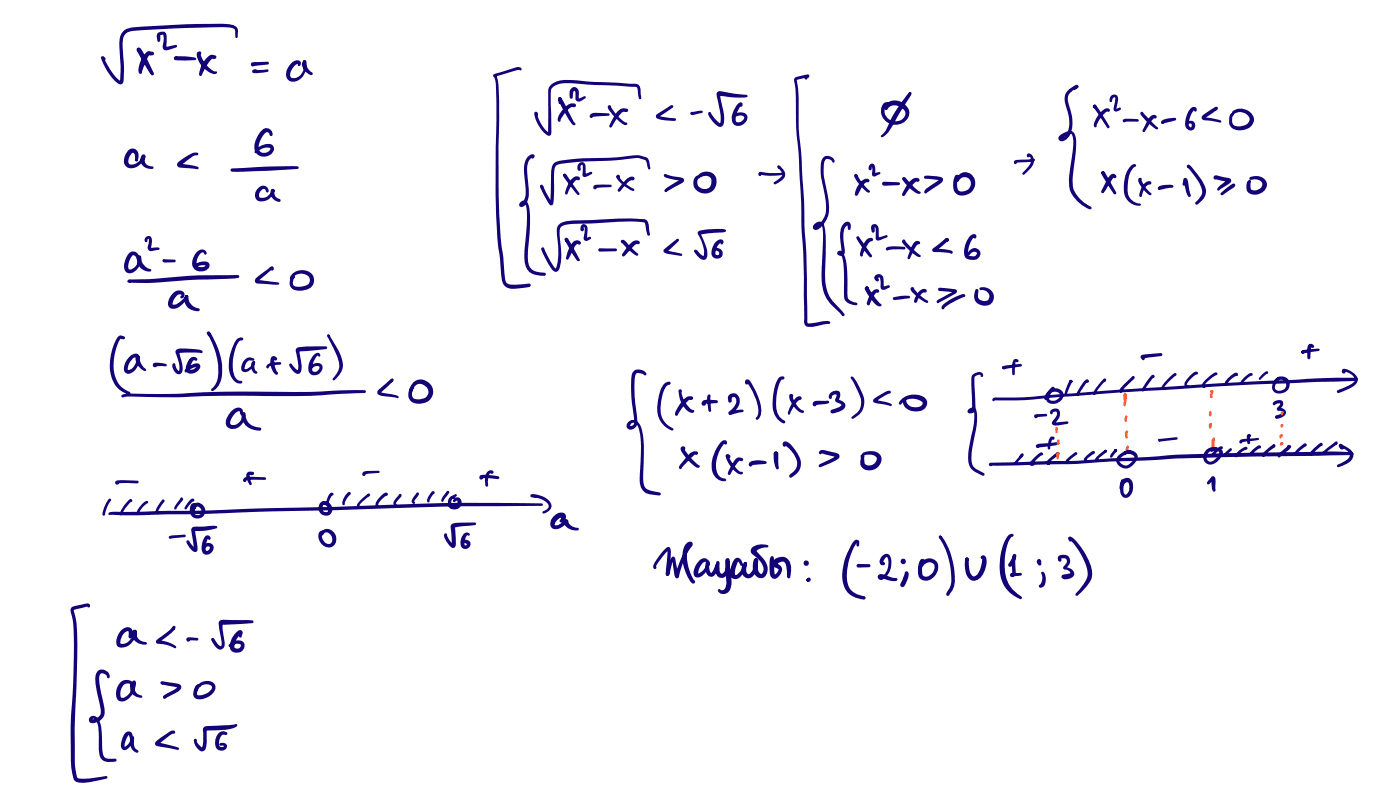 √(x²-x) = a
a < 6/a
(a²-6)/a < 0
((a-√6)(a+√6))/a < 0
- + - +
-√6 0 √6 a
[ a < -√6
{ a > 0
a < √6
[ √(x²-x) < -√6
{ √(x²-x) > 0
√(x²-x) < √6
→ [ ∅
{ x²-x > 0
{ x²-x < 6
x²-x ⩾ 0
→ { x²-x-6 < 0
x(x-1) ⩾ 0
{ (x+2)(x-3) < 0
x(x-1) > 0
{ + - +
-2 3
+ - +
0 1
: (-2;0)∪(1;3)